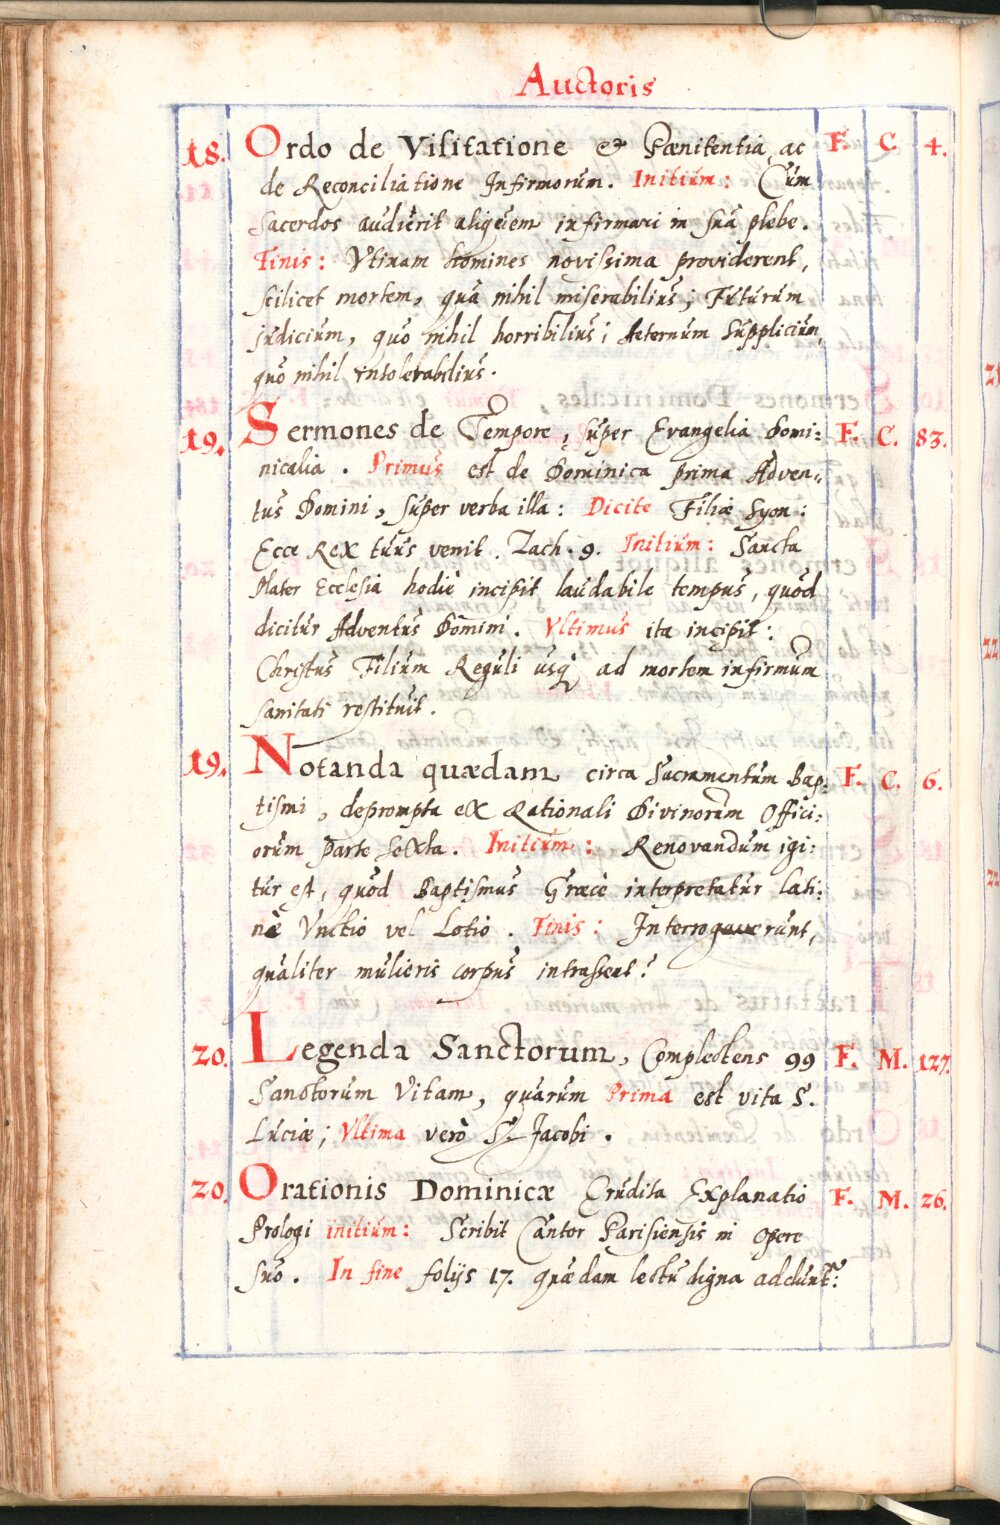 Auctoris
18. Ordo de Visitatione & Pœnitentia, ac F. C. 4.
de Reconciliatione Infirmorum. Initium: Cùm
sacerdos audierit aliquem infirmari in suâ plebe.
Finis: Vtinam homines novissima providerent,
scilicet mortem, quâ nihil miserabilius; Futurum
judicium, quo nihil horribilius; Aeternum Supplicium,
quo nihil intolerabilius.
19. Sermones de Tempore, super Evangelia Domi: F. C. 83.
nicalia. Primus est de Dominica prima Adven„
tus Domini, super verba illa: Dicite Filiæ Syon:
Ecce Rex tuus venit. Zach. 9. Initium: Sancta
Mater Ecclesia hodiè incipit laudabile tempus, quod
dicitur Adventus Domini. Vltimus ita incipit:
Christus Filium Reguli usq; ad mortem infirmum
sanitati restituit.
19. Notanda quædam circa Sacramentum Bap: F. C. 6.
tismi, deprompta ex Rationali Divinorum Offici:
orum parte sexta. Initium: Renovandum igi:
tur est, quod Baptismus Græcè interpretatur Lati:
nè Vnctio vel Lotio. Finis: Interrogaverunt,
qualiter mulieris corpus intrasset?
20. Legenda Sanctorum, Complectens 99 F. M. 127.
Sanctorum Vitam, quarum Prima est vita S.
Luciæ; Vltima verò S. Jacobi.
20. Orationis Dominicæ Erudita Explanatio F. M. 26.
Prologi initium: Scribit Cantor Parisiensis in opere
suo. In fine folijs 17. quædam lectu digna addunt: